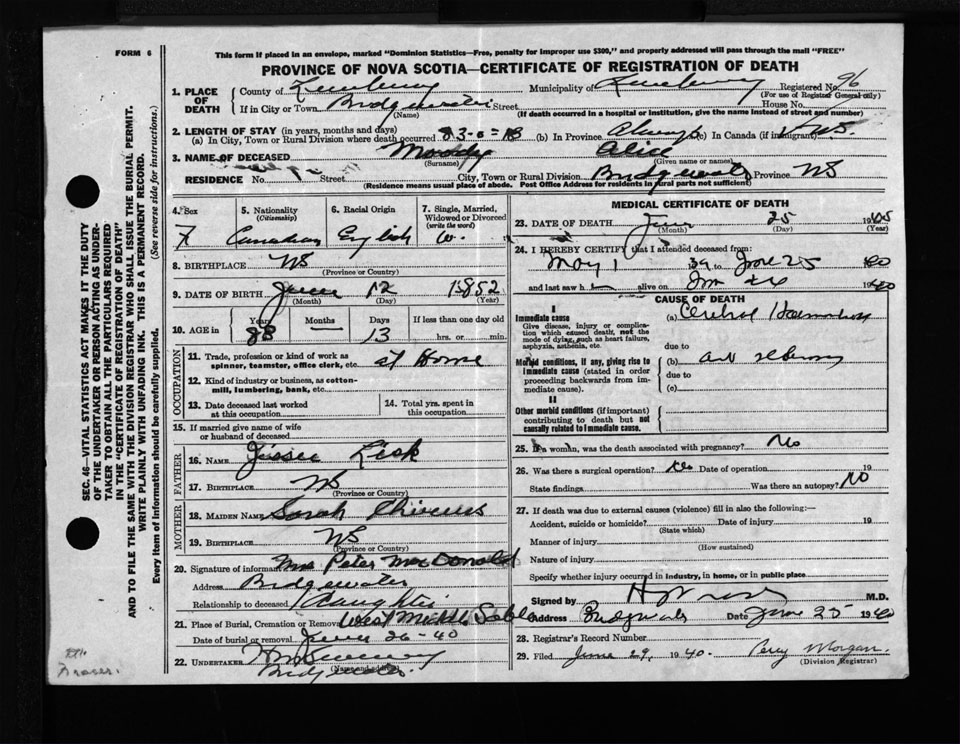 FORM 6
This form if placed in an envelope, marked "Dominion Statistics—Free, penalty for improper use $300," and properly addressed will pass through the mail "FREE"
PROVINCE OF NOVA SCOTIA—CERTIFICATE OF REGISTRATION OF DEATH
SEC. 46—VITAL STATISTICS ACT MAKES IT THE DUTY
OF THE UNDERTAKER OR PERSON ACTING AS UNDER-
TAKER TO OBTAIN ALL THE PARTICULARS REQUIRED
IN THE "CERTIFICATE OF REGISTRATION OF DEATH"
AND TO FILE THE SAME WITH THE DIVISION REGISTRAR WHO SHALL ISSUE THE BURIAL PERMIT.
WRITE PLAINLY WITH UNFADING INK. THIS IS A PERMANENT RECORD.
Every item of Information should be carefully supplied. (See reverse side for instructions.)
1. PLACE OF DEATH County of Lunenburg Municipality of Lunenburg Registered No. 96
(For use of Registrar General only)
If in City or Town Bridgewater Street House No.
(Name) (If death occurred in a hospital or institution, give the name instead of street and number)
2. LENGTH OF STAY (in years, months and days)
(a) In City, Town or Rural Division where death occurred (b) In Province Always (c) In Canada (if immigrant)
3. NAME OF DECEASED Alice
(Surname) (Given name or names)
RESIDENCE No. Street City, Town or Rural Division Bridgewater Province NS
(Residence means usual place of abode. Post Office Address for residents in rural parts not sufficient)
4. Sex 5. Nationality (Citizenship) 6. Racial Origin 7. Single, Married, Widowed or Divorced (write the word)
F Canadian English W.
8. BIRTHPLACE NS
(Province or Country)
9. DATE OF BIRTH June 12 1852
(Month) (Day) (Year)
10. AGE in Years Months Days If less than one day old
88 13 hrs. or min.
OCCUPATION
11. Trade, profession or kind of work as spinner, teamster, office clerk, etc. at Home
12. Kind of industry or business, as cotton-mill, lumbering, bank, etc.
13. Date deceased last worked at this occupation 14. Total yrs. spent in this occupation
15. If married give name of wife or husband of deceased
FATHER
16. NAME
17. BIRTHPLACE NS
(Province or Country)
MOTHER
18. MAIDEN NAME Sarah
19. BIRTHPLACE NS
(Province or Country)
20. Signature of informant Mrs Peter MacDonald
Address Bridgewater
Relationship to deceased Daughter
21. Place of Burial, Cremation or Removal West Middle Sable
Date of burial or removal June 26-40
22. UNDERTAKER
(Name and address)
Bridgewater
MEDICAL CERTIFICATE OF DEATH
23. DATE OF DEATH June 25 1940
(Month) (Day) (Year)
24. I HEREBY CERTIFY that I attended deceased from:
May 1 39 to June 25 1940
and last saw h alive on 1940
CAUSE OF DEATH
I
Immediate cause (a) Cerebral Haemorrhage
Give disease, injury or complication which caused death, not the mode of dying, such as heart failure, asphyxia, asthenia, etc.
due to
Morbid conditions, if any, giving rise to immediate cause (stated in order proceeding backwards from immediate cause). (b)
due to
(c)
II
Other morbid conditions (if important) contributing to death but not causally related to immediate cause.
25. If a woman, was the death associated with pregnancy? No
26. Was there a surgical operation? No Date of operation 19
State findings Was there an autopsy? No
27. If death was due to external causes (violence) fill in also the following:—
Accident, suicide or homicide? Date of injury 19
(State which)
Manner of injury
(How sustained)
Nature of injury
Specify whether injury occurred in industry, in home, or in public place
Signed by M.D.
Address Bridgewater Date June 25 1940
28. Registrar's Record Number
29. Filed June 29, 1940. Percy Morgan
(Division Registrar)